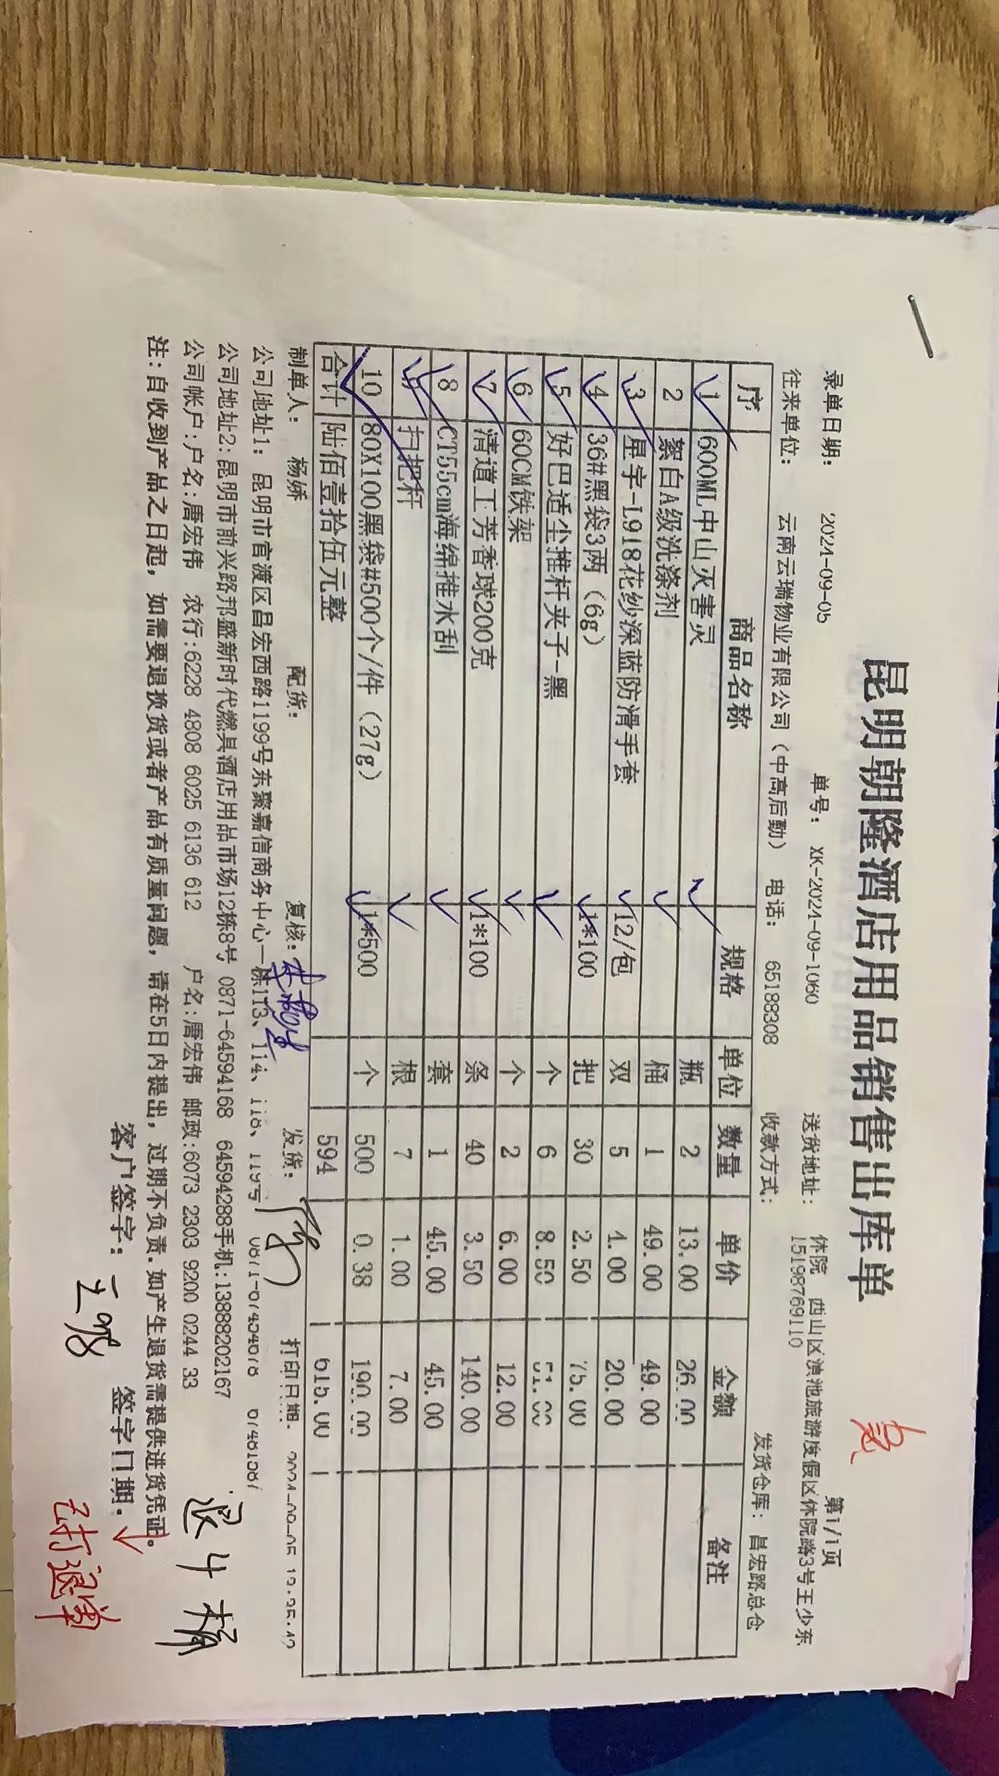 昆明朝隆酒店用品销售出库单
第1/1页
录单日期: 2024-09-05 单号: XK-2024-09-1060 送货地址: 休院 西山区滇池旅游度假区休院路3号王少东 15198769110
往来单位: 云南云瑞物业有限公司(中高后勤) 电话: 65188308 收款方式: 发货仓库: 昌宏路总仓
序 商品名称 规格 单位 数量 单价 金额 备注
1 600ML中山灭害灵 瓶 2 13.00 26.00
2 絮白A级洗涤剂 桶 1 49.00 49.00
3 星宇-L918花纱深蓝防滑手套 12/包 双 5 4.00 20.00
4 36#黑袋3两(6g) 1*100 把 30 2.50 75.00
5 好巴适尘推杆夹子-黑 个 6 8.50 51.00
6 60CM铁架 个 2 6.00 12.00
7 清道工芳香球200克 1*100 条 40 3.50 140.00
8 CT55cm海绵推水刮 套 1 45.00 45.00
扫把杆 根 7 1.00 7.00
10 80X100黑袋#500个/件(27g) 1*500 个 500 0.38 190.00
合计 陆佰壹拾伍元整 594 615.00
制单人: 杨娇 配货: 复核: 发货: 打印日期: 2024-09-05
公司地址1: 昆明市官渡区昌宏西路1199号东聚嘉信商务中心一栋113、114、118、119号
公司地址2:昆明市前兴路邦盛新时代燃具酒店用品市场12栋8号 0871-64594168 64594288手机:13888202167
公司帐户:户名:唐宏伟 农行:6228 4808 6025 6136 612 户名:唐宏伟 邮政:6073 2303 9200 0244 33
注:自收到产品之日起,如需要退换货或者产品有质量问题,请在5日内提出,过期不负责.如产生退货需提供进货凭证。
客户签字: 签字日期: